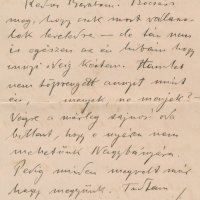 Kedves Barátom. Bocsáss
meg, hogy csak most válaszo-
lok leveledre – de tán nem
is egészen az én hibám hogy
ennyi ideig késtem. Hamlet
nem töprengett annyit mint
én, menjek, ne menjek?
Végre a mérleg sajnos oda
billent, hogy a nyáron nem
mehetünk Nagybányára.
Pedig minden megvolt már
hogy megyünk. Tudtam